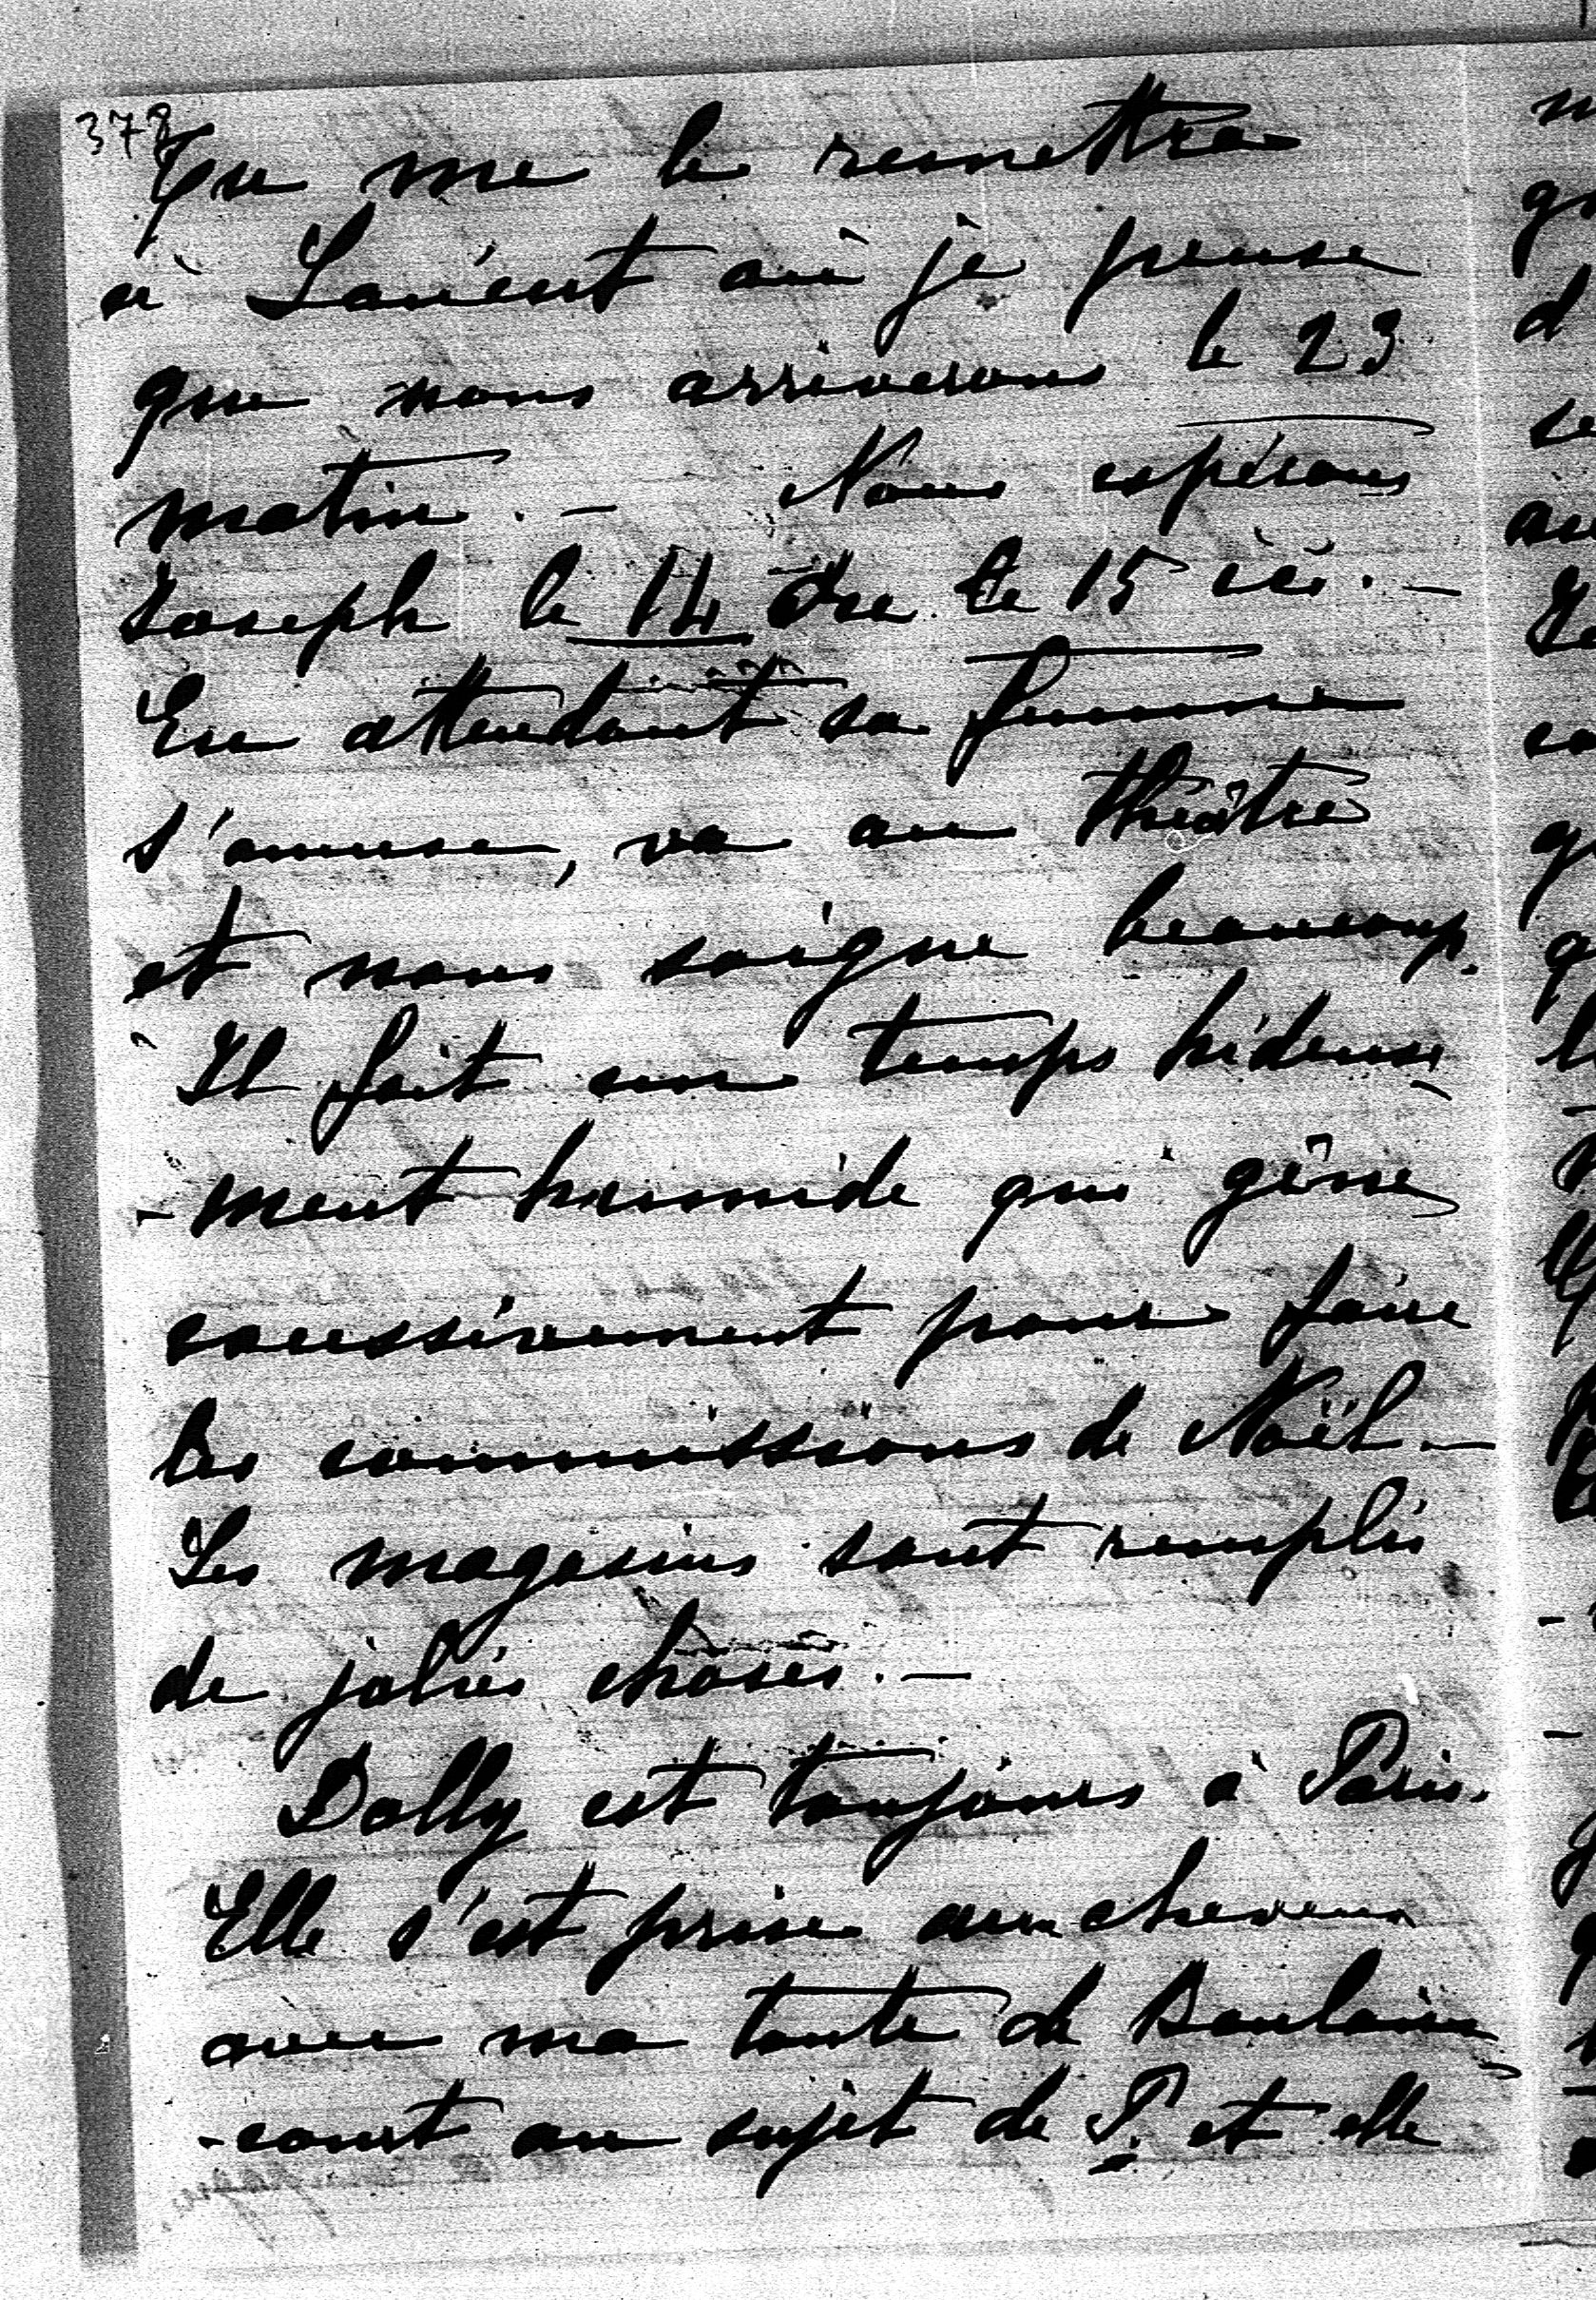 378
Tu me le remettra
à Lorient où je pense
que nous arriverons le 23
matin. - Nous espérons
Joseph le 14 ou le 15 ici. -
En attendant sa femme
s'amuse, va au théâtre
et nous soigne beaucoup.
Il fait un temps hideuse-
-ment humide qui gêne
excessivement pour faire
les commissions de Noël. -
Les magasins sont remplis
de jolies choses. -
Dolly est toujours à Paris.
Elle s'est prise aux cheveux
avec ma tante de Boulain-
-court au sujet de P. et elle